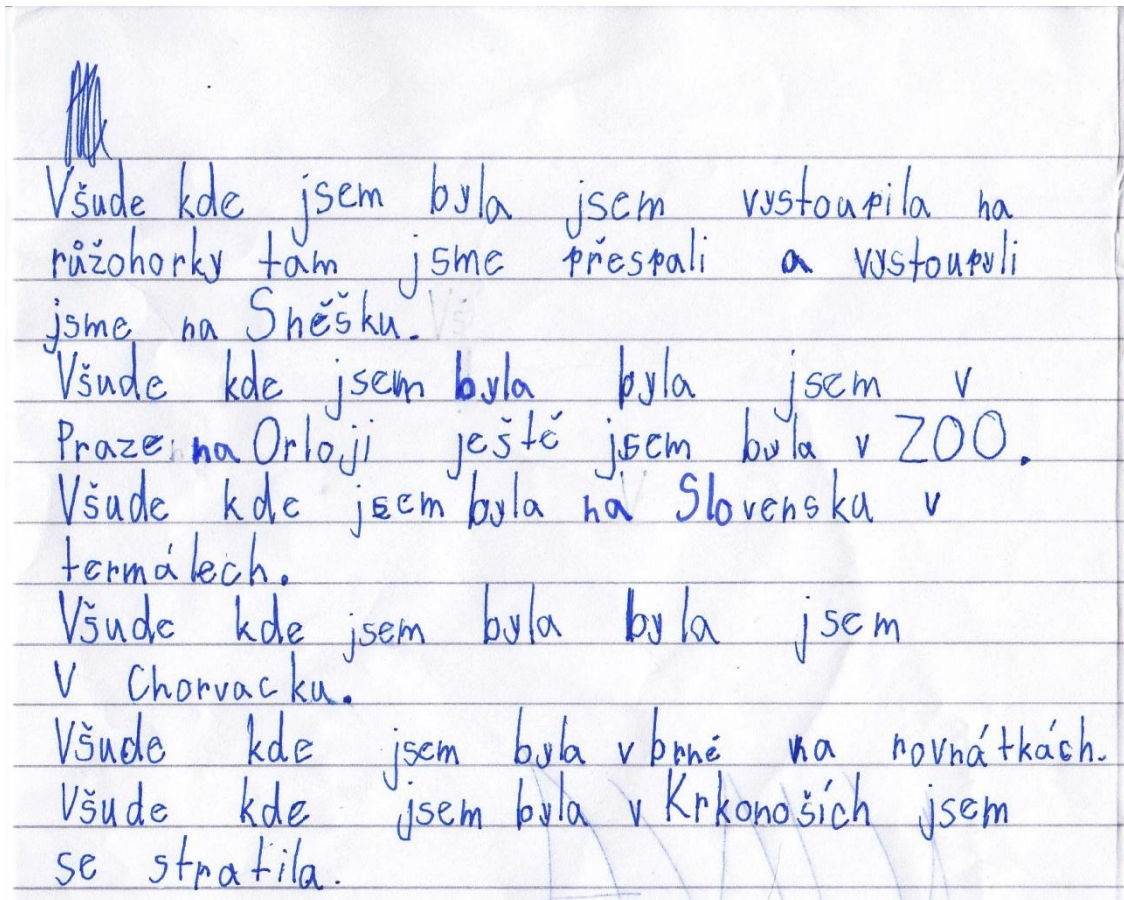 Všude kde jsem byla jsem vystoupila na
růžohorky tam jsme přespali a vystoupyli
jsme na Sněšku.
Všude kde jsem byla byla jsem v
Praze na Orloji ještě jsem byla v ZOO.
Všude kde jsem byla na Slovensku v
termálech.
Všude kde jsem byla byla jsem
V Chorvacku.
Všude kde jsem byla v brně na rovnátkách.
Všude kde jsem byla v Krkonoších jsem
se stratila.